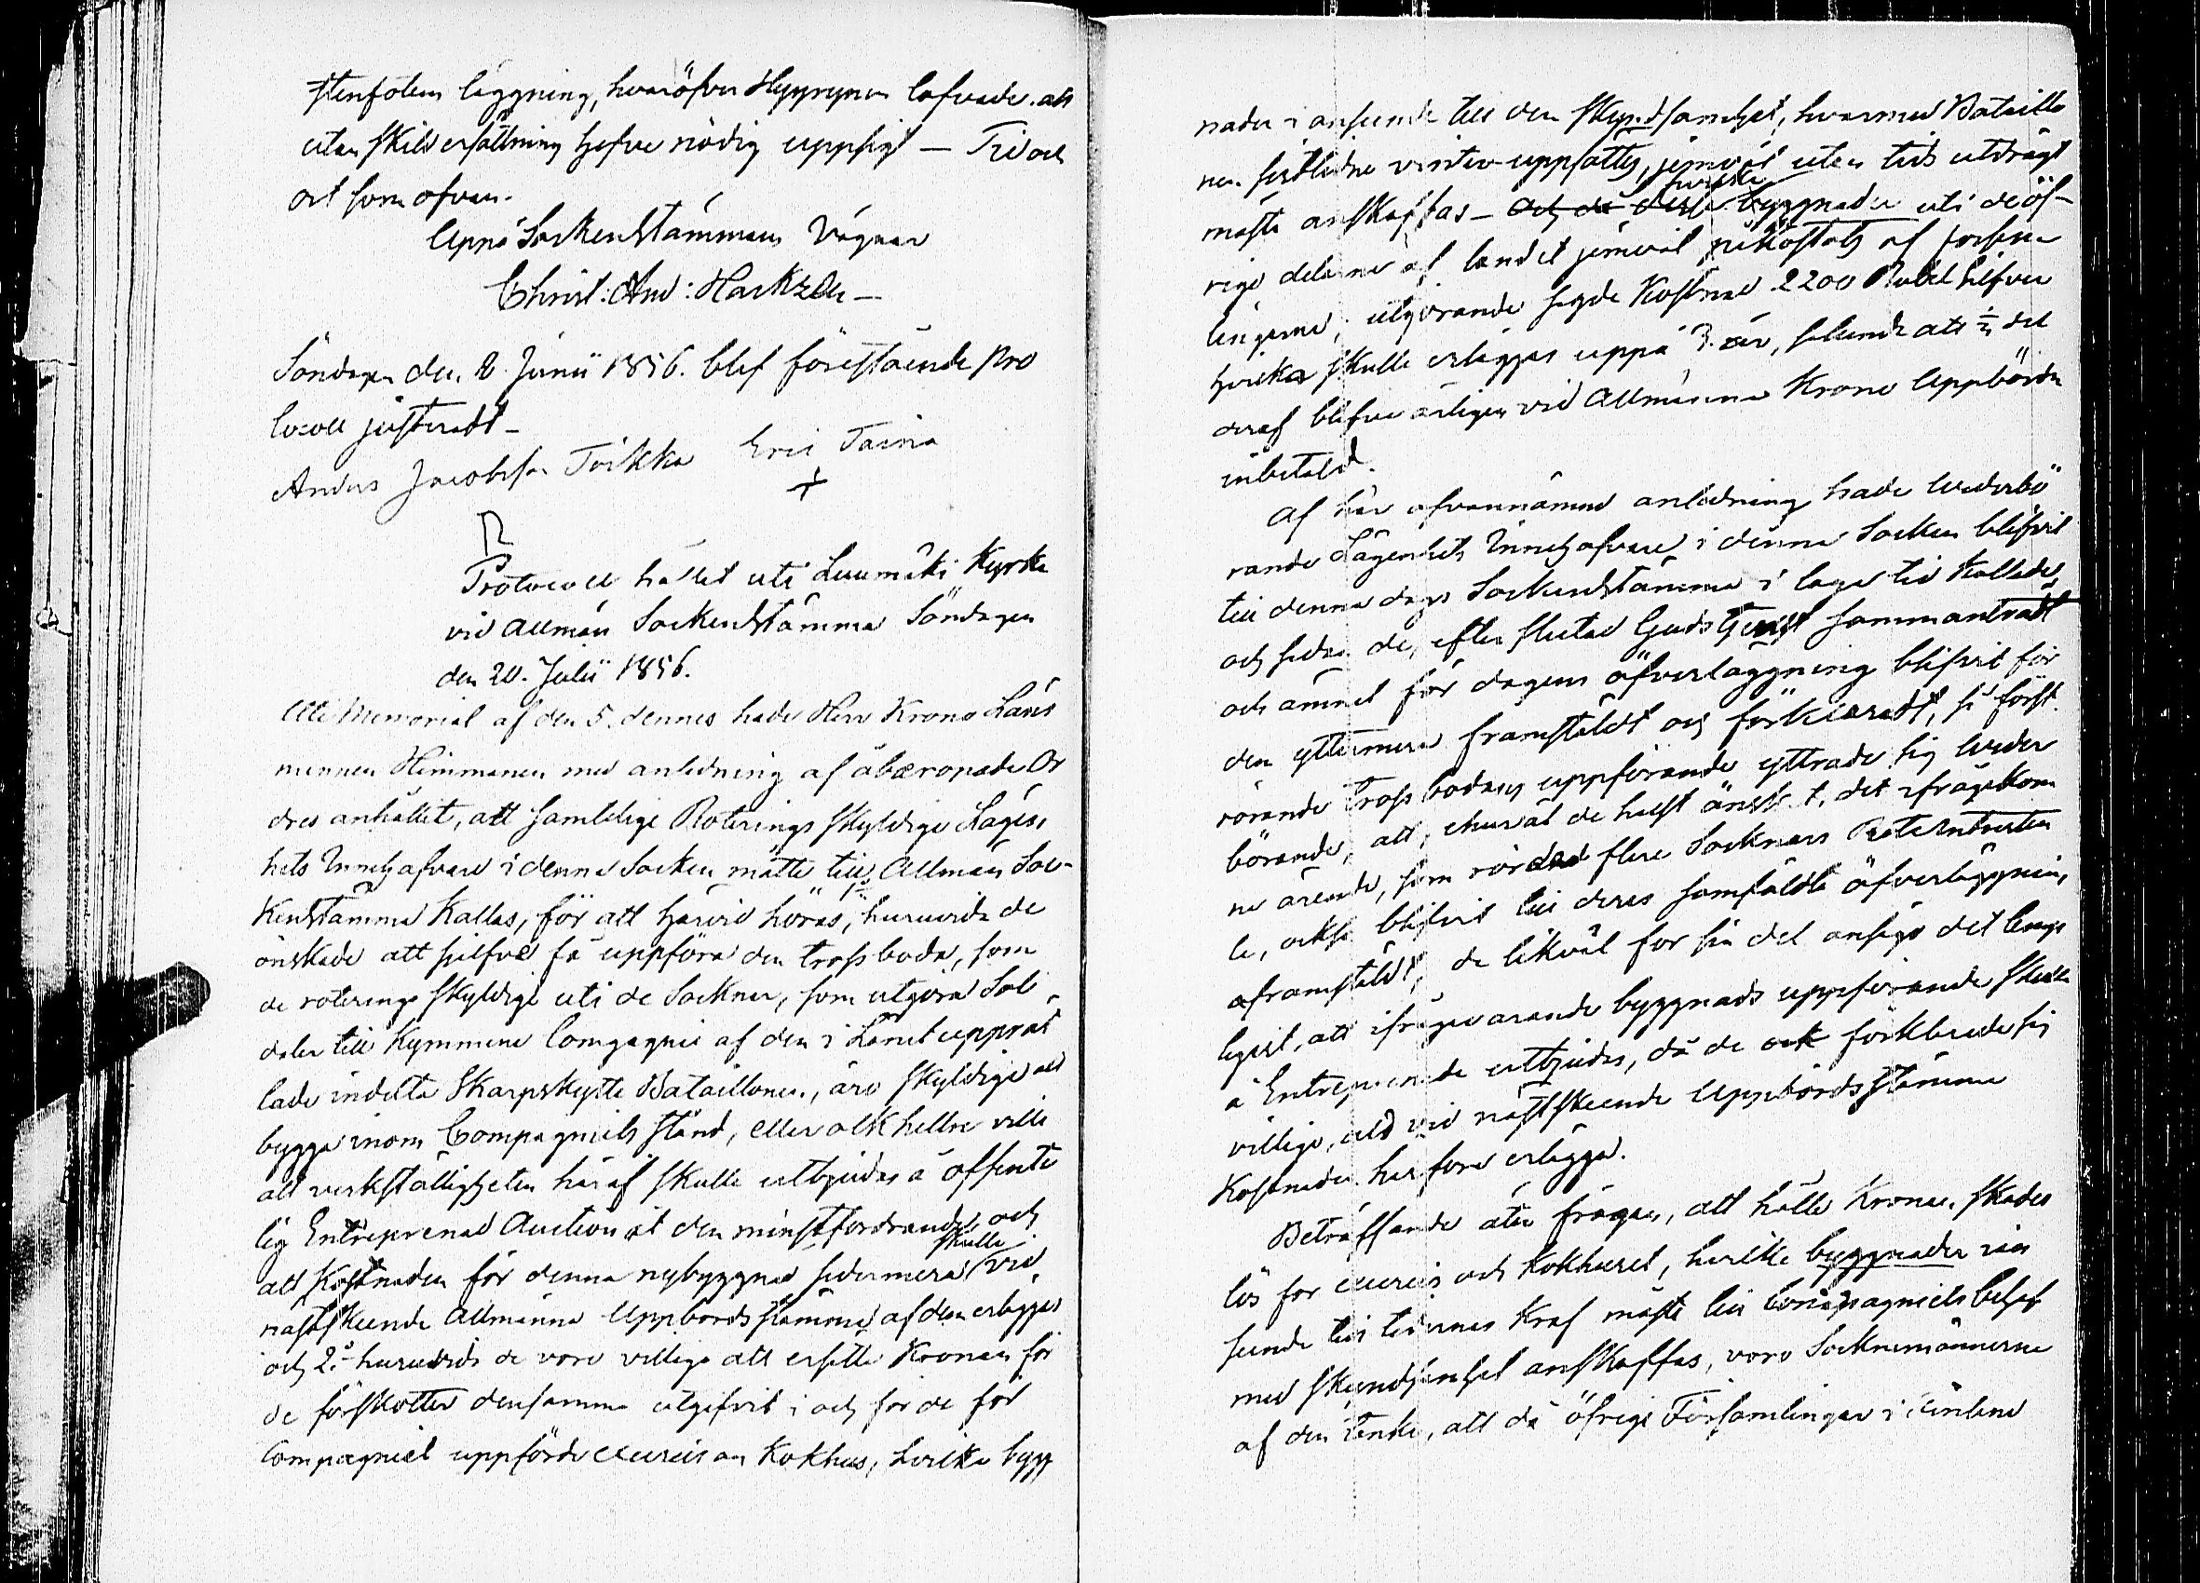 stenfotens läggning, hvaröfver Hyyrynen lofvade att
utan skild ersättning hafva nödig uppsigt — Tid och
ort som ofvan.
Uppå Sockenstämmans Vägnar
Christ: And: Hackzell —
Söndagen den 8 Junii 1856. blef förestående Pro
tocoll justeradt —
Anders Jacobsson Toikka Eric Taina
+
Protocoll hållet uti Luumäki Kyrka
vid Allmän Sockenstämma Söndagen
den 20. Julii 1856.
Uti Memorial af den 5. dennes hade Herr Krono Läns
mannen Himmanen med anledning af åberopade Or
dres anhållit, att samtelige Roterings skyldige Lägen-
hets Innehafvare i denna Socken måtte till Allmän Soc-
kenstämma kallas, för att härvid höras, huruvida de
önskade att sjelfve få uppföra den trossboda, som
de roterings skyldige uti de Socknar, som utgöra Sol-
dater till Kymmene Compagnie af den i Länet upprät
tade indelta Skarpskytte Bataillonen, äro skyldige att
bygga inom Compagniets stånd, eller ock hellre ville
att verkställigheten häraf skulle utbjudas å offent-
lig Entreprenad Auction åt den minstfordrande, och
att kostnaden för denna nybyggnad sedermera skulle vid
nästskeende Allmänna Uppbördsstämma af dem erläggas
och 2:o huruvida de voro villige att ersätta Kronan för
de förskotter densamma utgifvit i och för de för
Compagniet uppförde exercis och Kokhus, hvilka bygg
nader i anseende till den skyndsamhet, hvarmed Bataillo
nen sistledne vinter uppsattes, jemväl utan tids utdrägt
måste anskaffas — och då dessa byggnader uti de öf-
rige delarne af landet jemväl påkostats af försam
lingarne, utgörande sagde Kostnad 2200 Rubel Silfver
hvilka skulle erläggas uppå 3. år, sålunda att 1/3 del
deraf blefve årligen vid Allmänna Krono Uppbörden
inbetald.
Af här ofvannämnd anledning hade vederbö
rande Lägenhets Innehafvare i denna Socken blifvit
till denna dags Sockenstämma i laga tid Kallade,
och sedan de, efter slutad Gudstjenst sammanträdt
och ämnet för dagens öfverläggning blifvit för
dem yttermera framstäldt och förklaradt, så först
rörande tross bodans uppförande yttrade sig veder
börande, att, ehuruväl de helst önskat, det ifrågakom
ne ärende, som rörde flere Socknars
le, också blifvit till deras samfäldta öfverläggning
framstäldt, de likväl för sin del ansågo det lämp
ligast, att ifrågavarande byggnads uppförande skulle
å Entreprenade utbjudas, då de ock förklarade sig
villige, att vid nästskeende Uppbördsstämma
Kostnaden härföre erlägga.
Beträffande åter frågan, att hålla Kronan skades
lös för exercis och Kokhuset, hvilka byggnader i an
seende till tidernas kraf måste till Compagniets behof
med skyndsamhet anskaffas, voro Socknemännerne
af den tanke, att då öfrige Församlingar i Finland